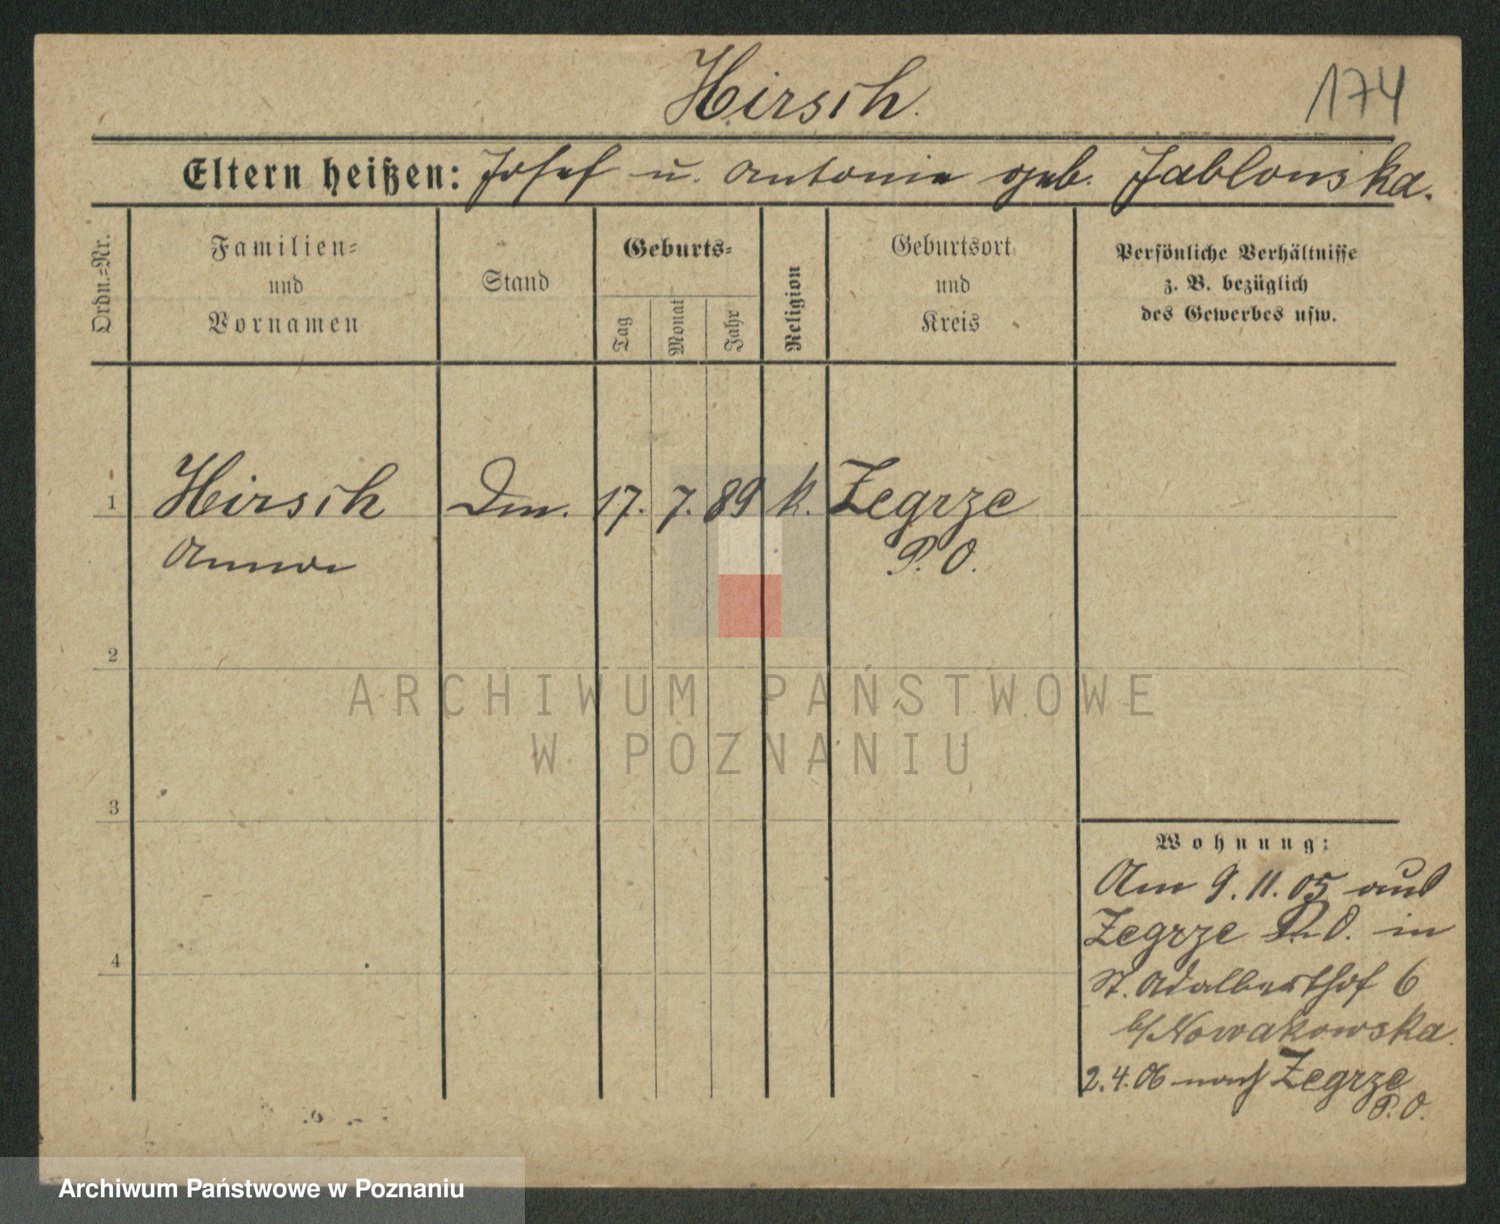 Hirsch
174
Eltern heißen: Josef u. Antonie geb. Jablonska.
Ordn.=Nr.
Familien=
und
Vornamen
Stand
Geburts=
Tag
Monat
Jahr
Religion
Geburtsort
und
Kreis
Persönliche Verhältnisse
z. B. bezüglich
des Gewerbes usw.
1 Hirsch 17. 7. 89 k. Zegrze
Anna P. O.
2
3
4
Wohnung:
Am 9.11.05 aus
Zegrze P. O. in
St. Adalberthof 6
b/Nowakowska.
2.4.06 nach Zegrze
P. O.
ARCHIWUM PAŃSTWOWE
W POZNANIU
Archiwum Państwowe w Poznaniu